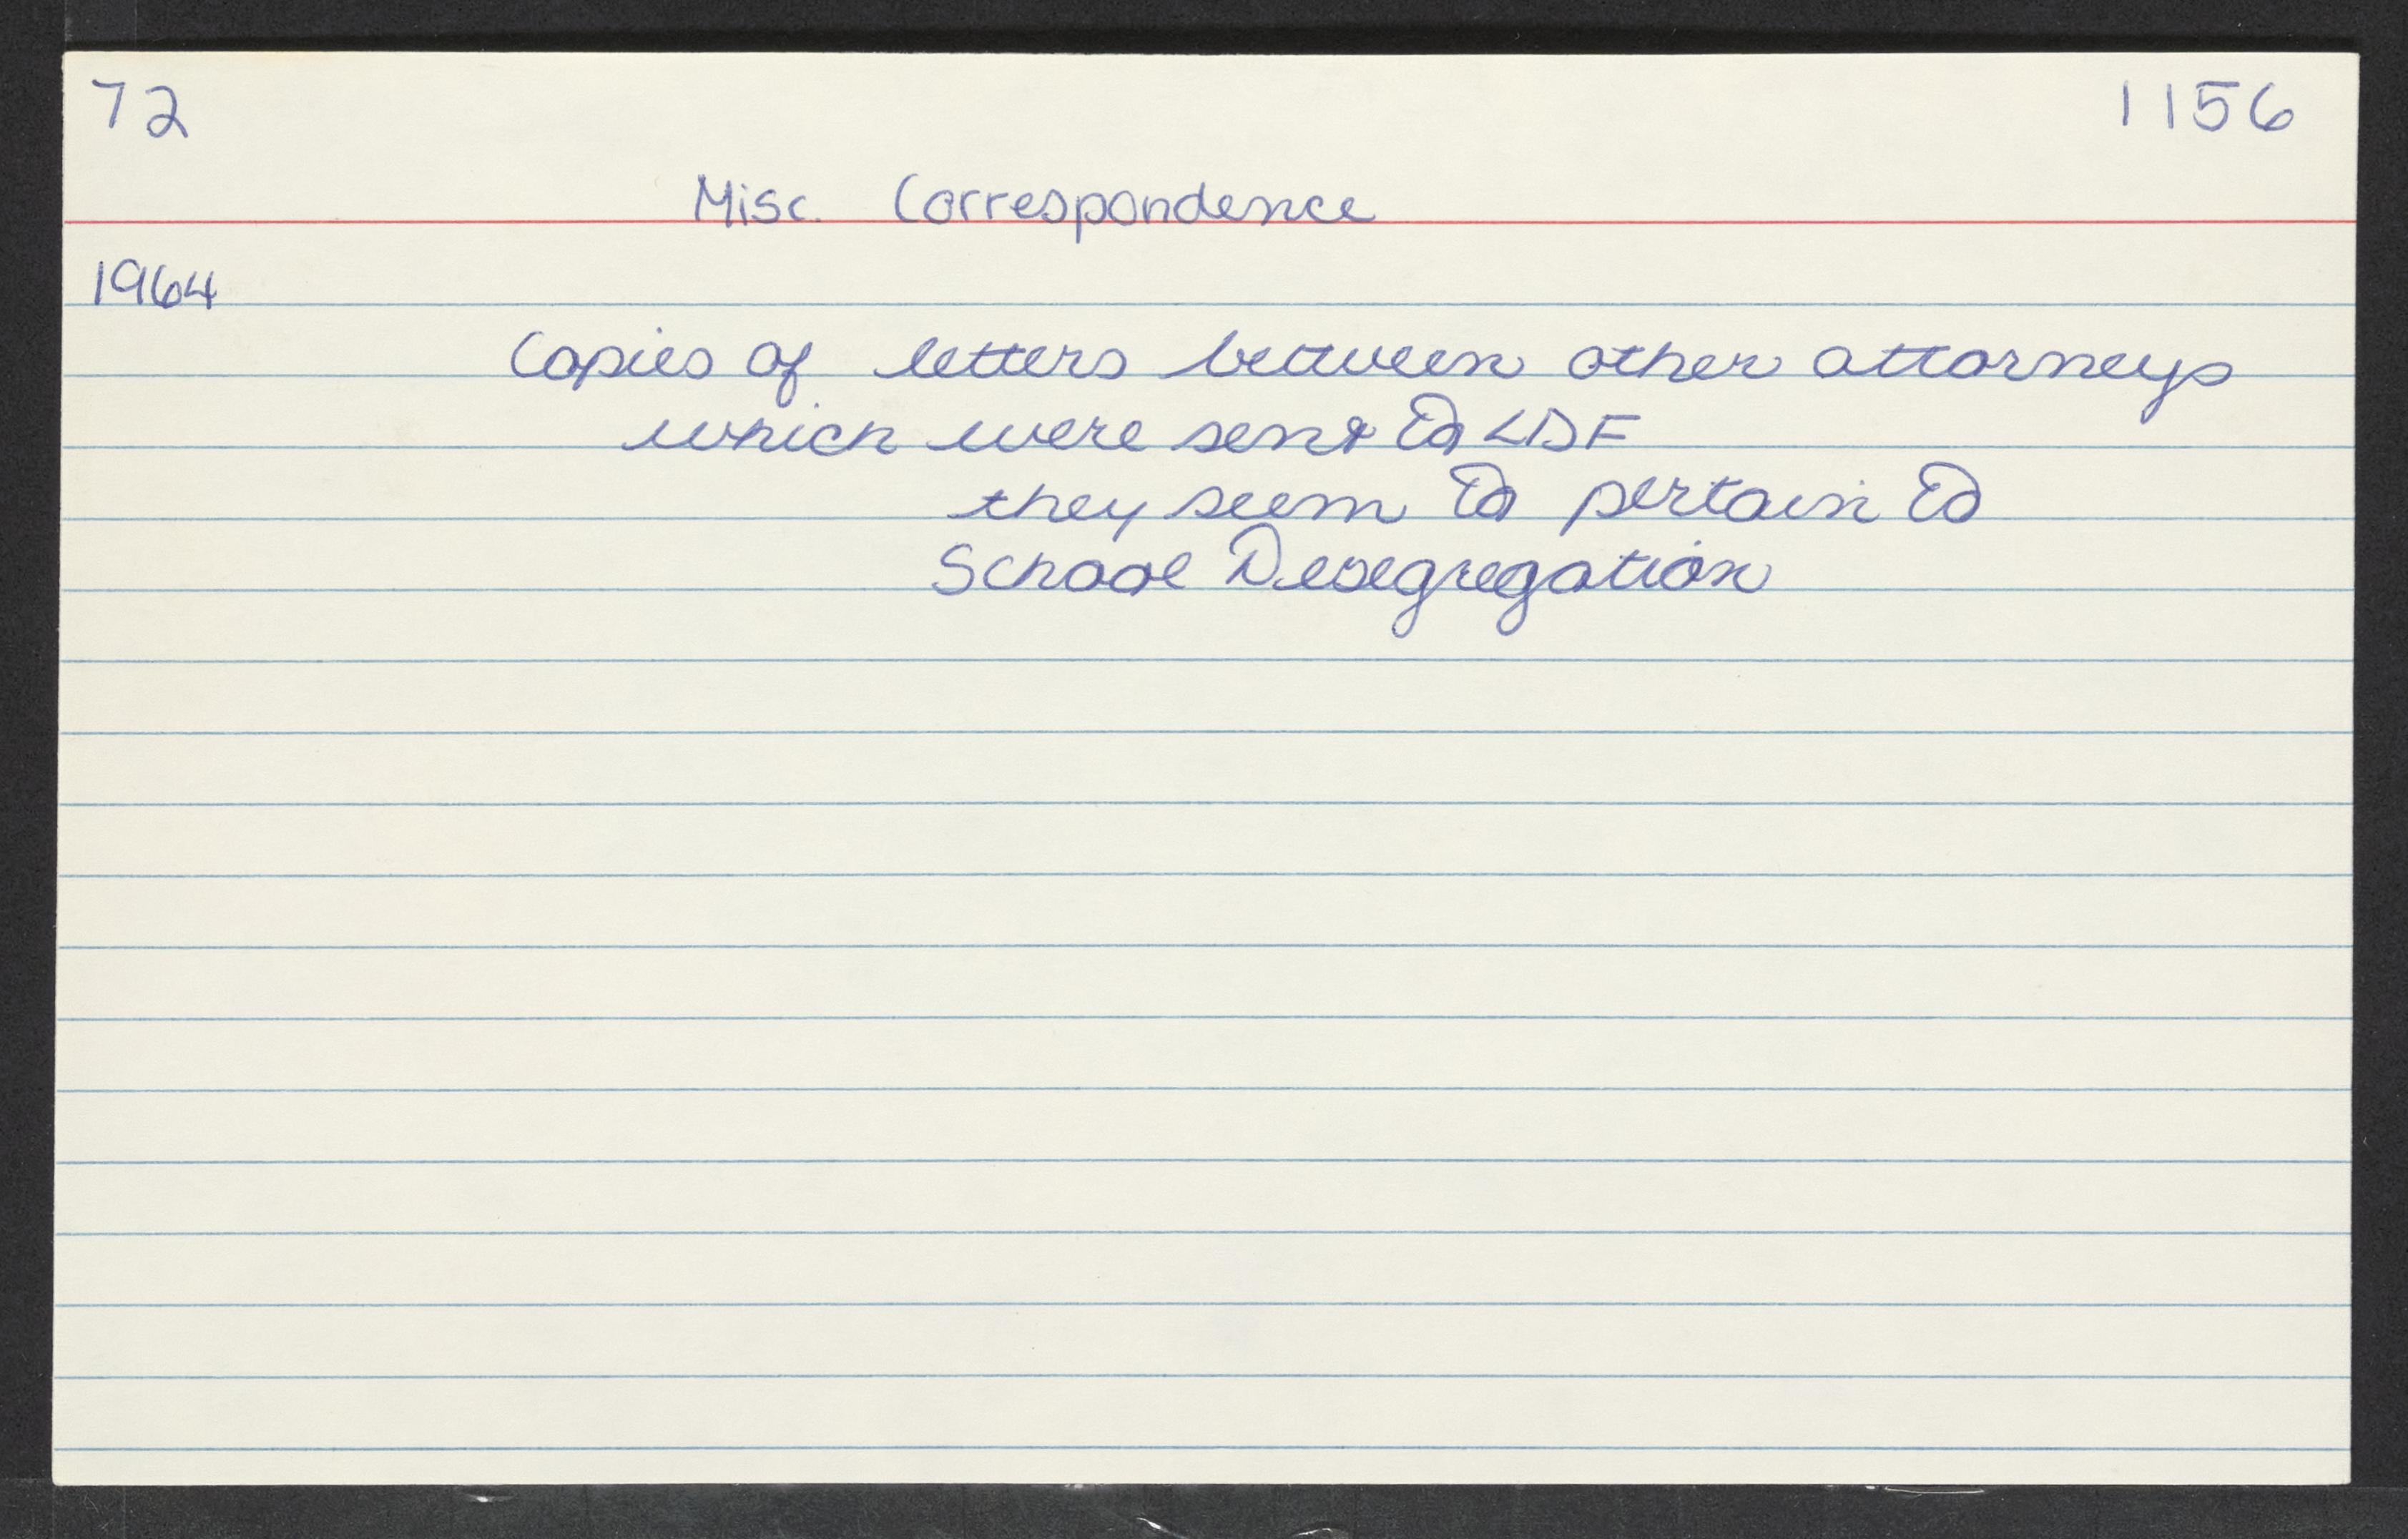 72 1156
Misc. Correspondence
1964
Copies of letters between other attorneys
which were sent to LDF
they seem to pertain to
School Desegregation